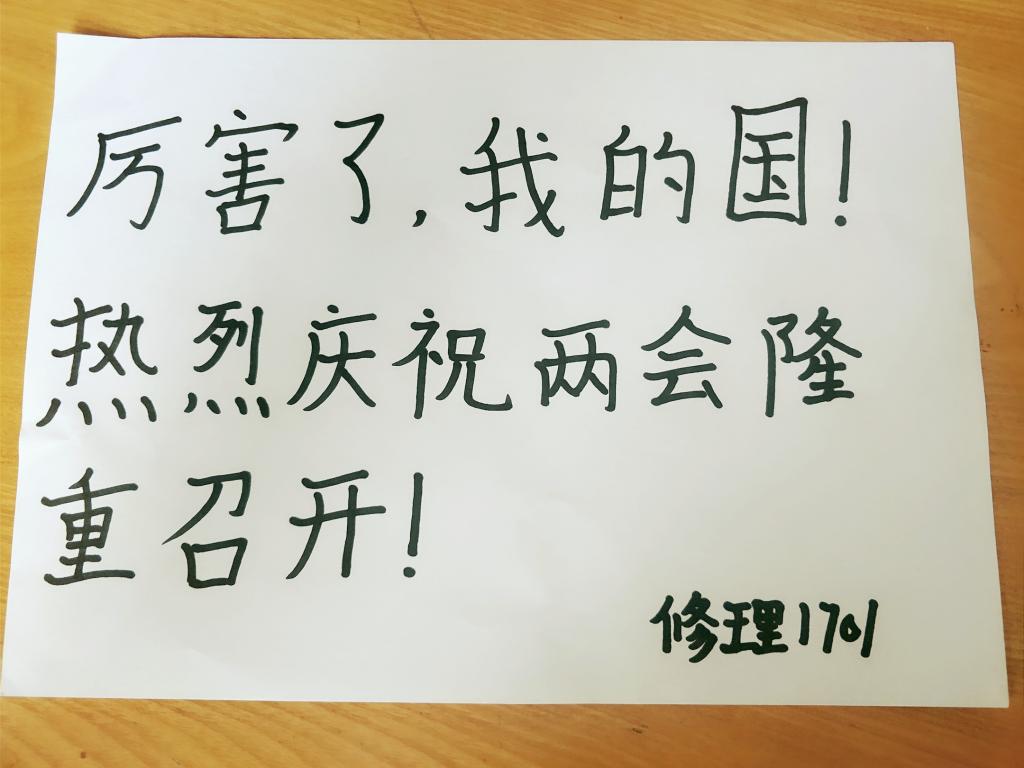 厉害了,我的国!
热烈庆祝两会隆
重召开!
修理1701